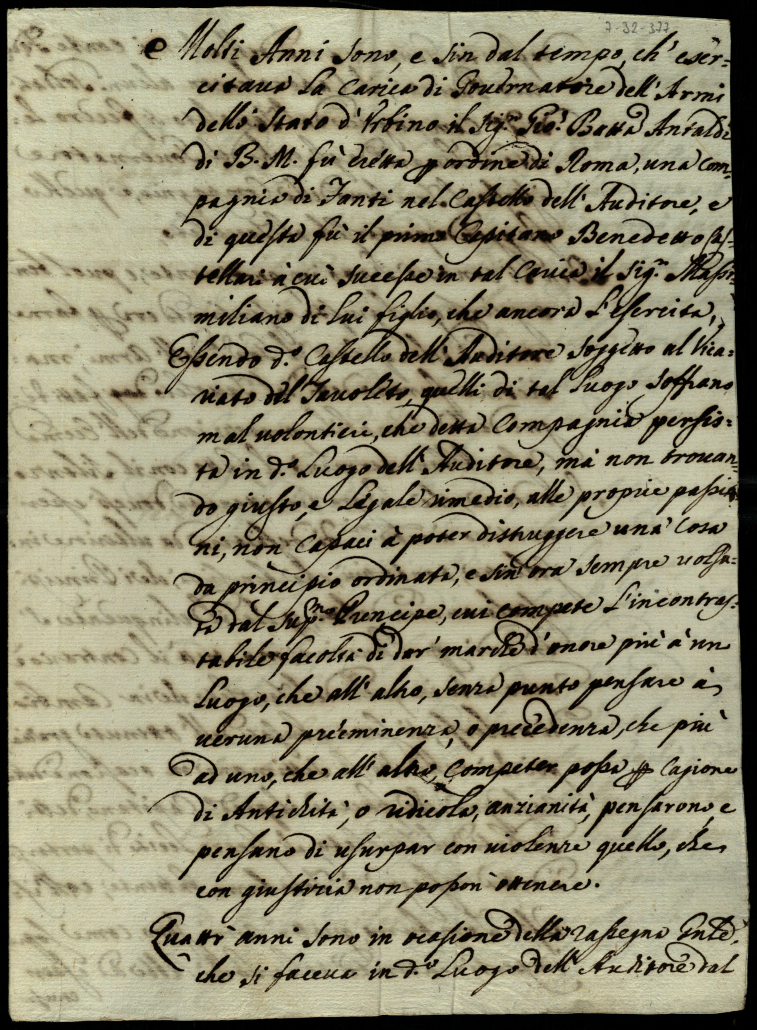 7-32-377
Molti Anni sono, e sin dal tempo, ch' eser-
citava la Carica di Governatore dell'Armi
dello Stato d'Urbino il Sig.r Gio: Batta Antaldi
di B. M. fù eretta p ordine di Roma, una Com-
pagnia di Fanti nel Castello dell'Auditore, e
di questa fù il primo Capitano Benedetto Cas-
tellari à cui succese in tal Carica il Sig.r Massi-
miliano di lui figlio, che ancora l'esercita,
Essendo d.o Castello dell'Auditore soggetto al Vica-
riato del Tavoleto, quelli di tal luogo soffrano
mal volontieri, che detta Compagnia persis-
ta in d.o Luogo dell'Auditore, mà non trovan-
do giusto, e legale rimedio, alle proprie passio-
ni, non capaci à poter distruggere una cosa
da principio ordinata, e sin ora sempre volsu-
ta dal Sup.mo Prencipe, cui compete l'incontras-
tabile facoltà di dar' marche d'onore più à un
Luogo, che all'altro, senza punto pensare à
veruna preeminenza, o precedenza, che più
ad uno, che all'altro, Competer possa p Cagione
di Antichità, o ridicola, anzianità, pensarono, e
pensano di usurpar con violenze quello, che
con giustizia non posson' ottenere.
Quattr' anni sono in ocasione della rassegna Gnãle,
che si faceva in d.o Luogo dell'Auditore dal